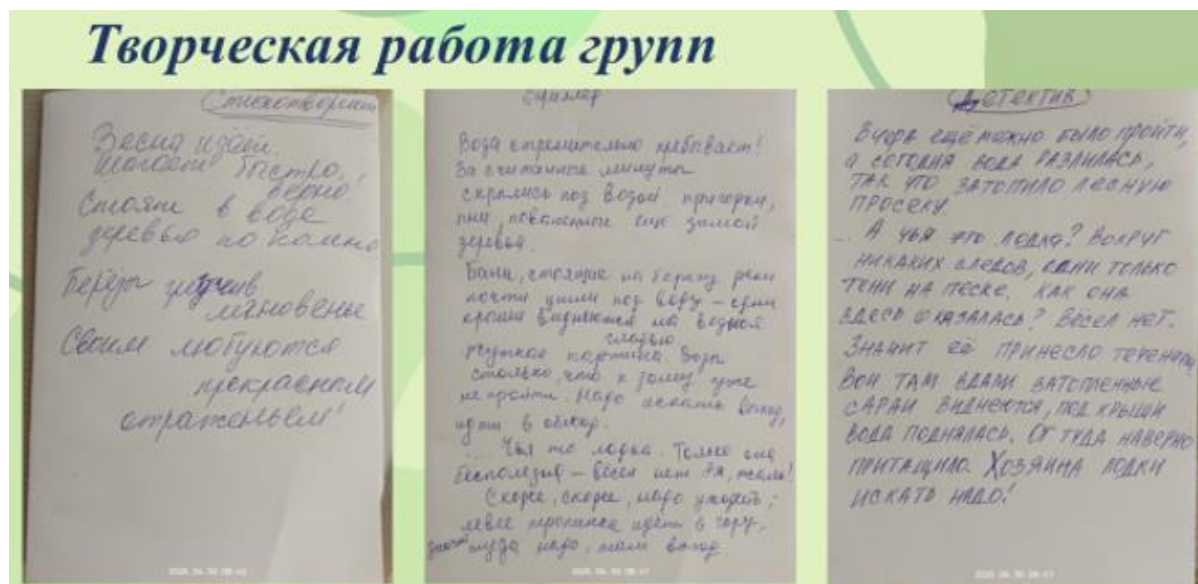 Творческая работа групп
Стихотворение
Весна идёт,
шагает быстро,
верно!
Стоят в воде
деревья по колено
Берёзы улучив
мгновенье
Своим любуются
прекрасным
отраженьем!
Триллер
Вода стремительно пребывает!
За считанные минуты
скрылись под водой пригорки,
пни, поваленные ещё зимой
деревья.
Бани, стоящие на берегу реки
почти ушли под воду – одни
крыши виднеются на водной
гладью
Жуткая картина. Воды
столько, что к дому уже
не пройти. Надо искать выход,
идти в обход.
... Чья то лодка. Только она
бесполезна – вёсел нет
Скорее, скорее, надо уходить;
левее тропинка идёт в гору,
значит туда надо, там выход.
Детектив
Вчера ещё можно было пройти,
а сегодня вода разлилась,
так что затопило лесную
просеку.
... А чья это лодка? Вокруг
никаких следов, одни только
тени на песке. Как она
здесь оказалась? Вёсел нет.
Значит её принесло течением
Вон там вдали затопленные
сараи виднеются, под крыши
вода поднялась. От туда наверно
притащило. Хозяина лодки
искать надо!